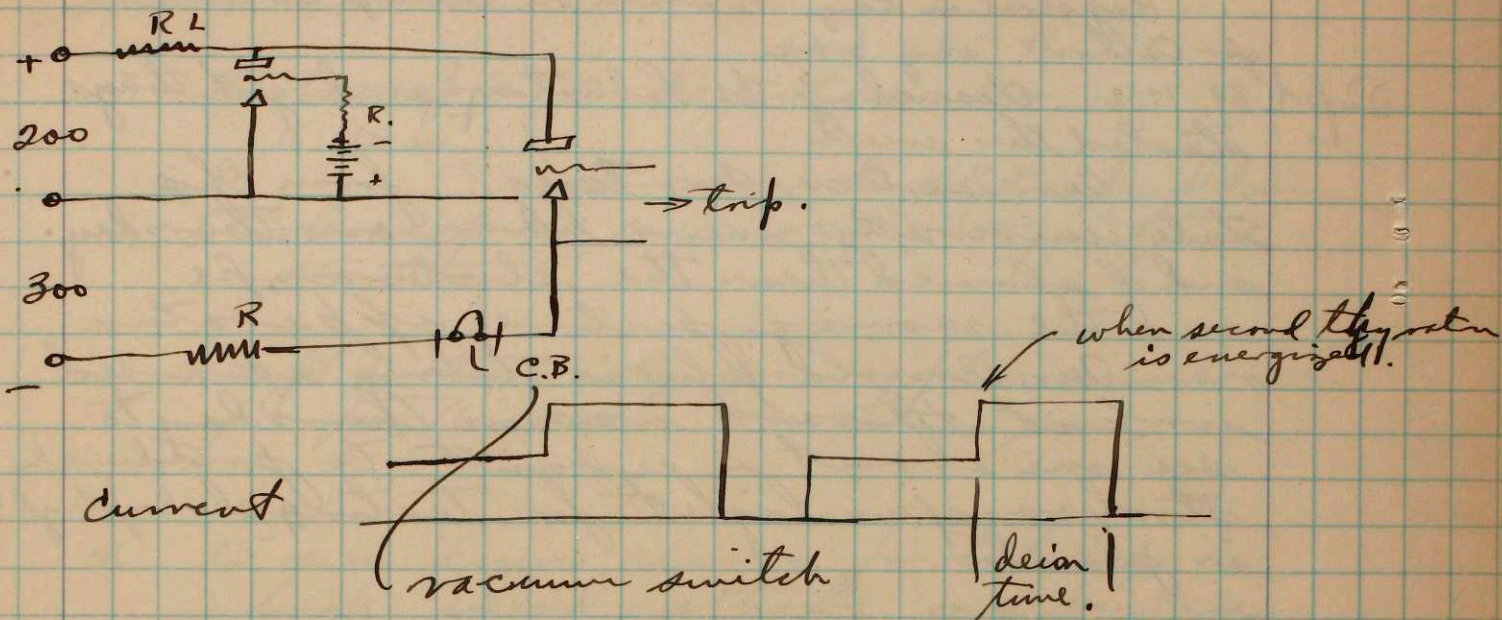 R L
+
200
R.
-
+
→ trip.
300
R
-
C.B.
when second thyratn
is energized.
current
vacuum switch
deion
time.